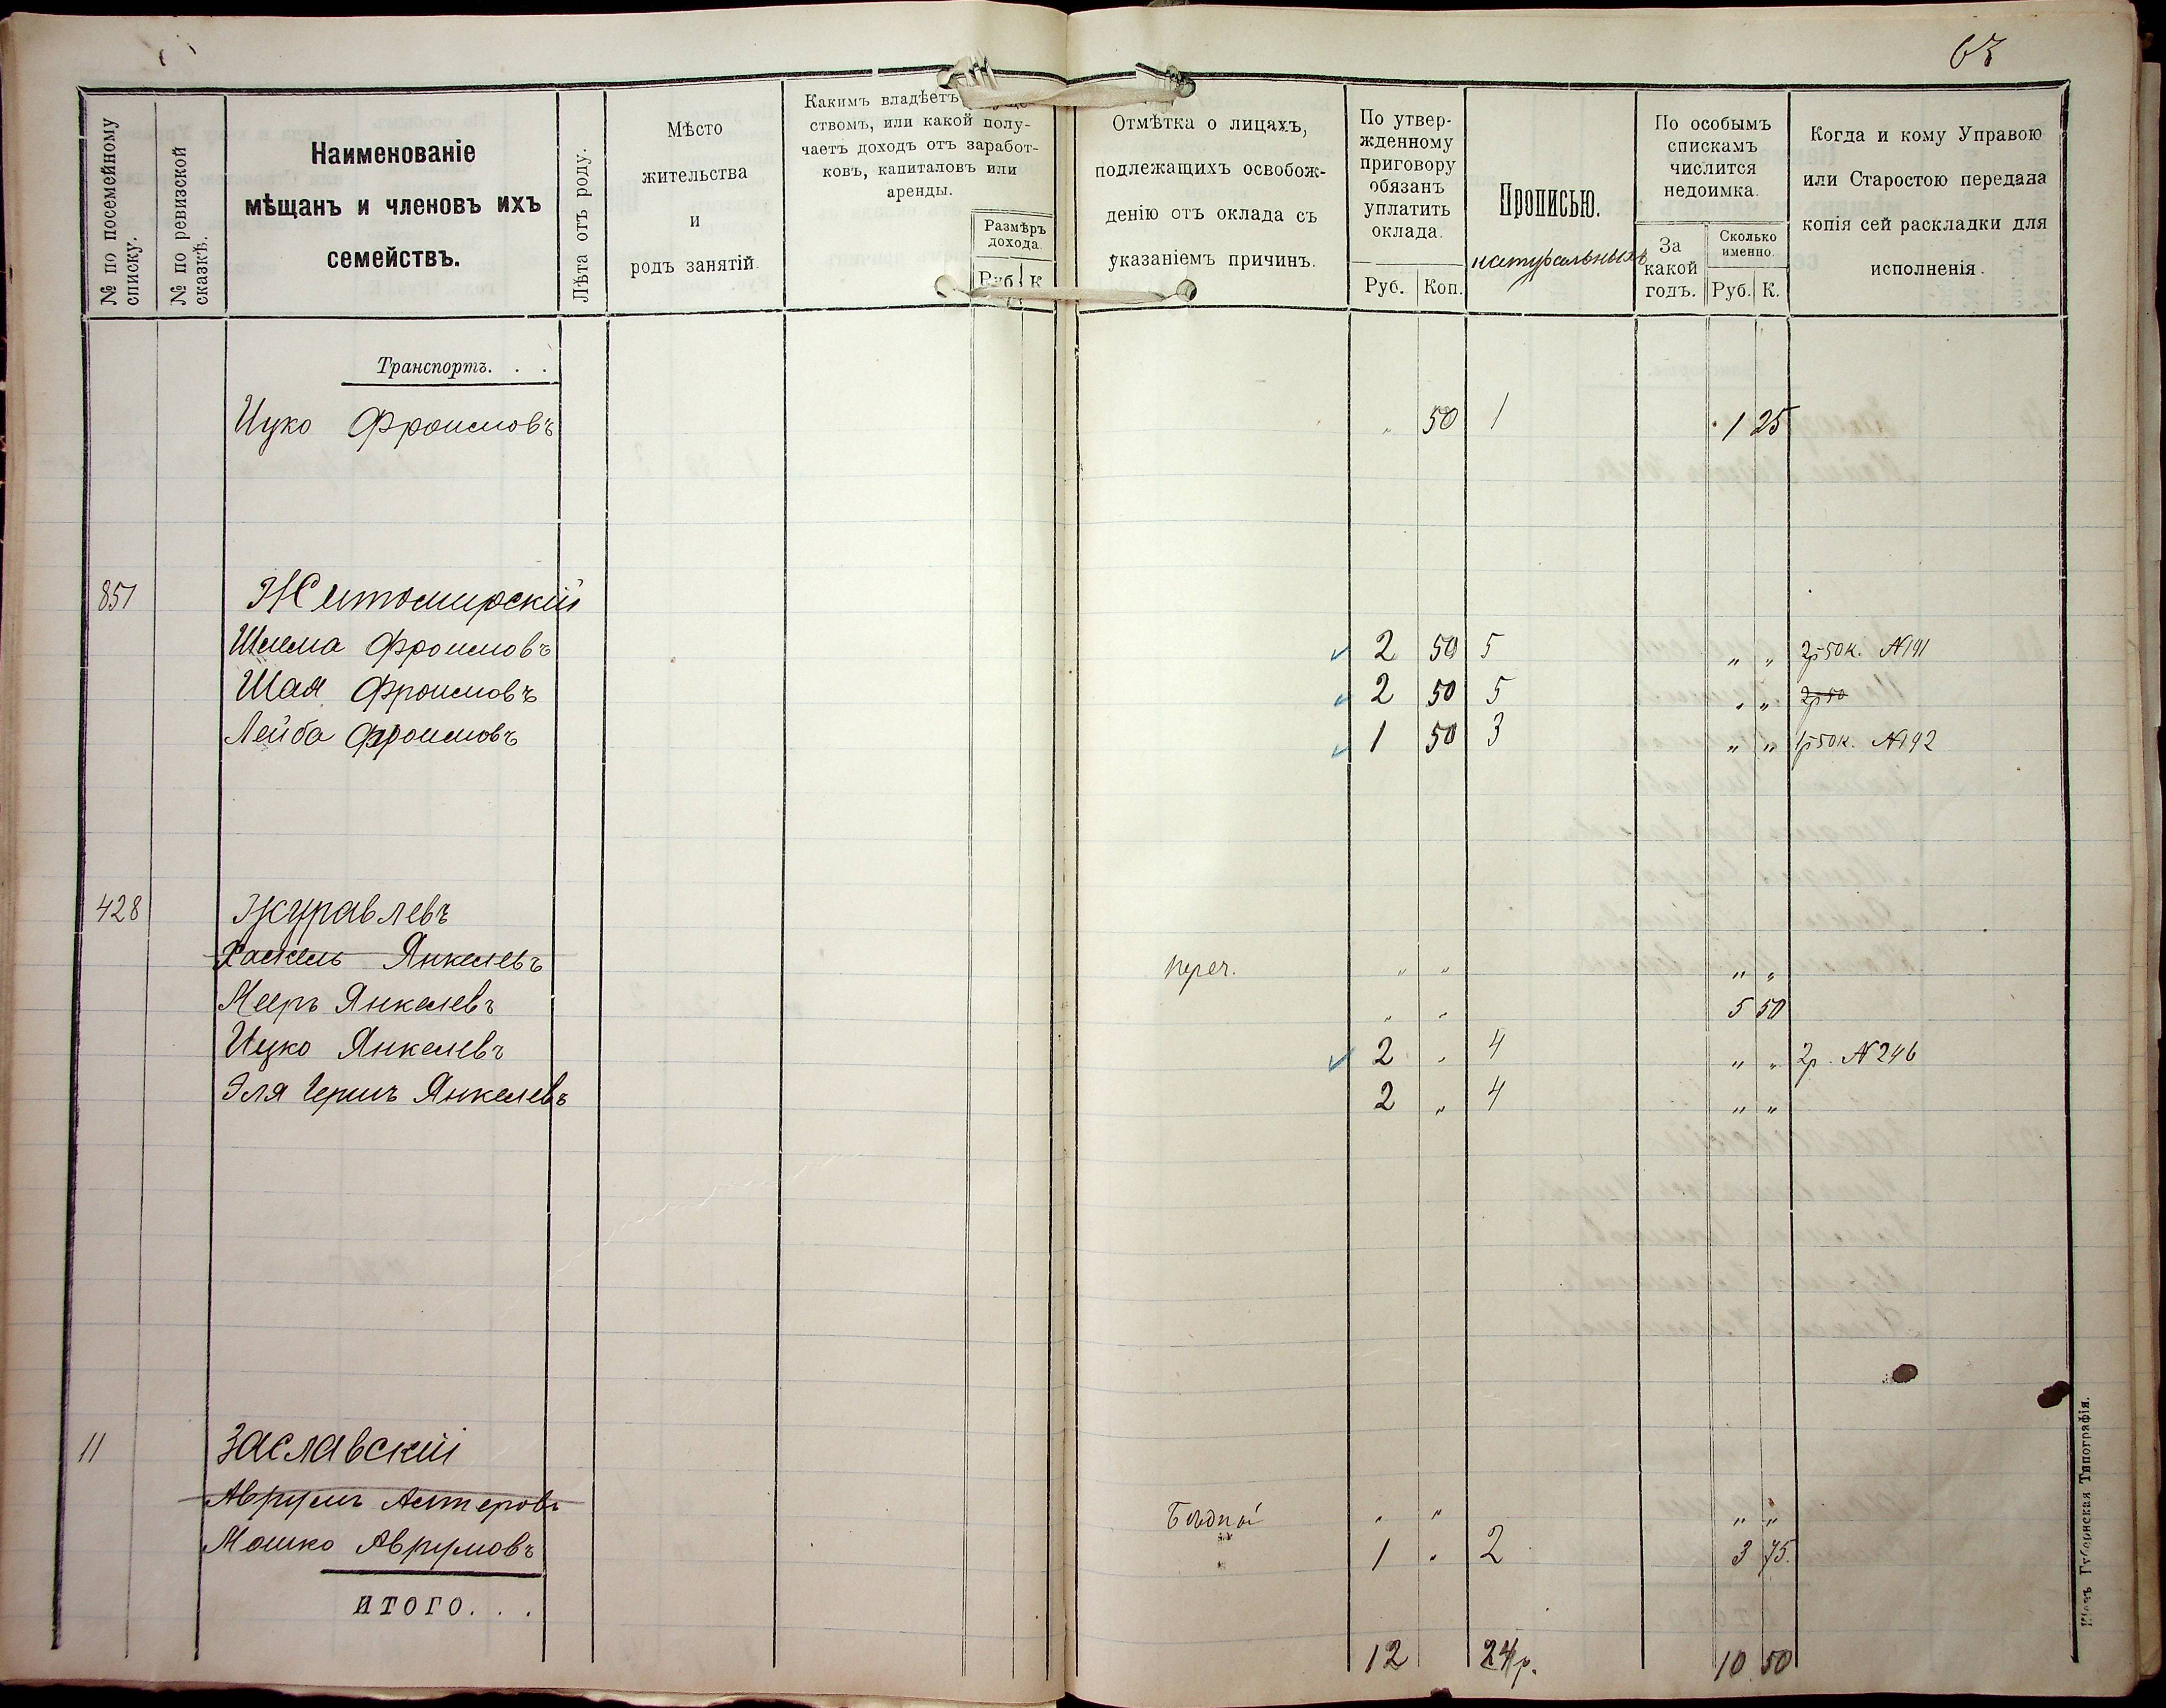 63
№ по посемейному списку.
№ по ревизской сказкѣ.
Наименованіе
мѣщанъ и членовъ ихъ
семействъ.
Лѣта отъ роду.
Мѣсто
жительства
и
родъ занятій.
Какимъ владѣетъ
ствомъ, или какой полу-
чаетъ доходъ отъ заработ-
ковъ, капиталовъ или
аренды.
Размѣръ
дохода.
Руб. К.
Отмѣтка о лицахъ,
подлежащихъ освобож-
денію отъ оклада съ
указаніемъ причинъ.
По утвер-
жденному
приговору
обязанъ
уплатить
оклада.
Руб. Коп.
Прописью.
натуральныхъ
По особымъ
спискамъ
числится
недоимка.
За
какой
годъ.
Сколько
именно.
Руб. К.
Когда и кому Управою
или Старостою передана
копія сей раскладки для
исполненія.
Транспортъ. . .
Ицко Фроимовъ „ 50 1 1 25
851 Житомирскій
Шлема Фроимовъ 2 50 5 „ „ 2р50к. №191
Шая Фроимовъ 2 50 5 „ „ 2р50
Лейба Фроимовъ 1 50 3 „ „ 1р50к. №192
428 Журавлевъ
Хаскель Янкелевъ переч. „ „ „ „
Мееръ Янкелевъ „ „ 5 50
Ицко Янкелевъ 2 „ 4 „ „ 2р. №246
Эля Гершъ Янкелевъ 2 „ 4 „ „
11 Заславскій
Аврумъ Алтеровъ Бѣдный „ „ „ „
Мошко Аврумовъ 1 „ 2 3 75.
ИТОГО. . .
12 24р. 10 50
Кіевъ Губернская Типографія.